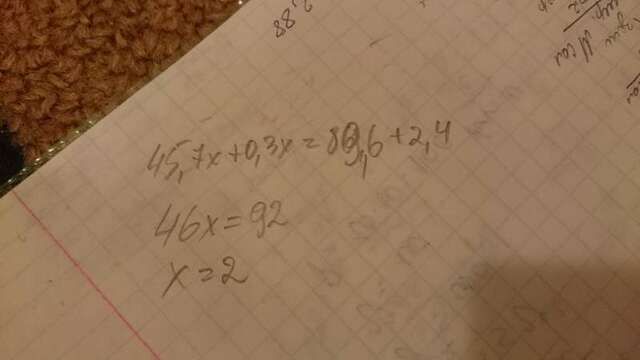 45,7x+0,3x=89,6+2,4
46x=92
x=2